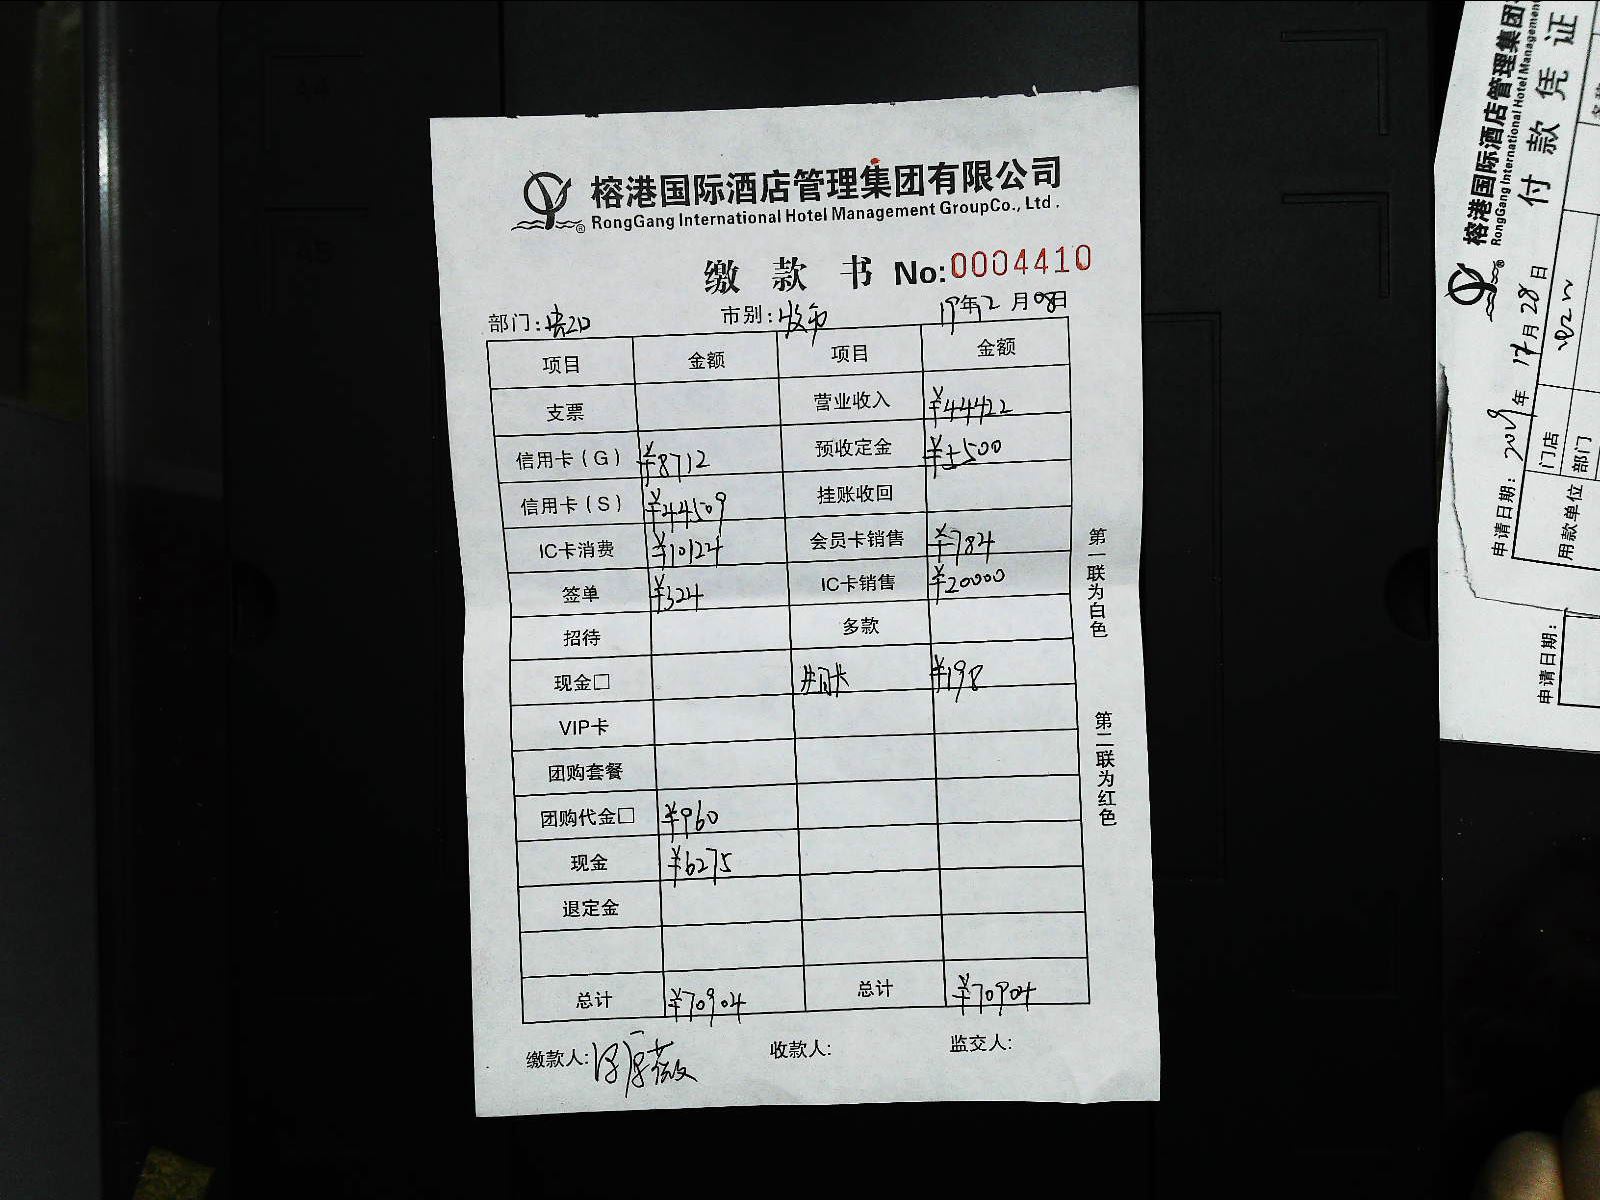 榕港国际酒店管理集团有限公司
RongGang International Hotel Management GroupCo., Ltd.
缴 款 书 No:0004410
部门: 市别: 19年12月08日
项目 金额 项目 金额
支票 营业收入 ¥44422
信用卡(G) ¥8712 预收定金 ¥5500
信用卡(S) ¥44509 挂账收回
IC卡消费 ¥10124 会员卡销售 ¥784
签单 ¥324 IC卡销售 ¥20000
招待 多款
现金□ ¥198
VIP卡
团购套餐
团购代金□ ¥960
现金 ¥6275
退定金
总计 ¥70904 总计 ¥70904
缴款人: 收款人: 监交人:
第一联为白色
第二联为红色
榕港国际酒店管理集团
RongGang International Hotel Management
付 款 凭 证
申请日期: 2019年12月28日
用款单位 门店
部门
申请日期: